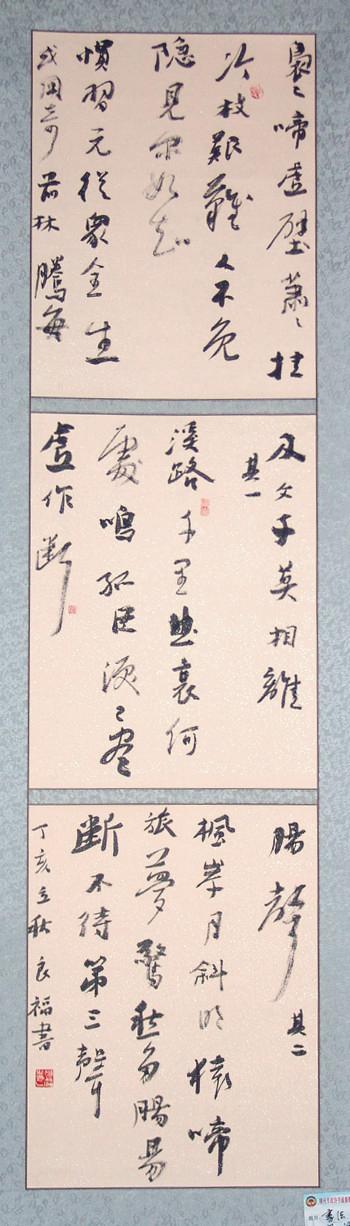 裊々啼虛壁蕭々挂
冷枝艱難人不免
隐見尔如知
慣習元從眾全生
或用奇前林騰每
及父子莫相離
其一
溪路千里曲哀何
處鳴孤臣淚已盡
虛作斷
腸聲
其二
楓岸月斜明猿啼
旅夢驚愁多腸易
斷不待第三聲
丁亥立秋良福書